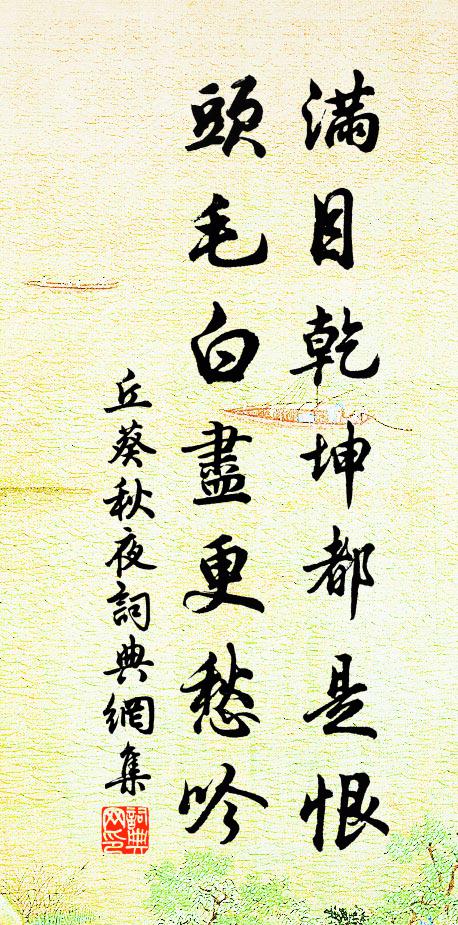 滿目乾坤都是恨
頭毛白盡更愁吟
丘葵秋夜詞典網集
詞典網印